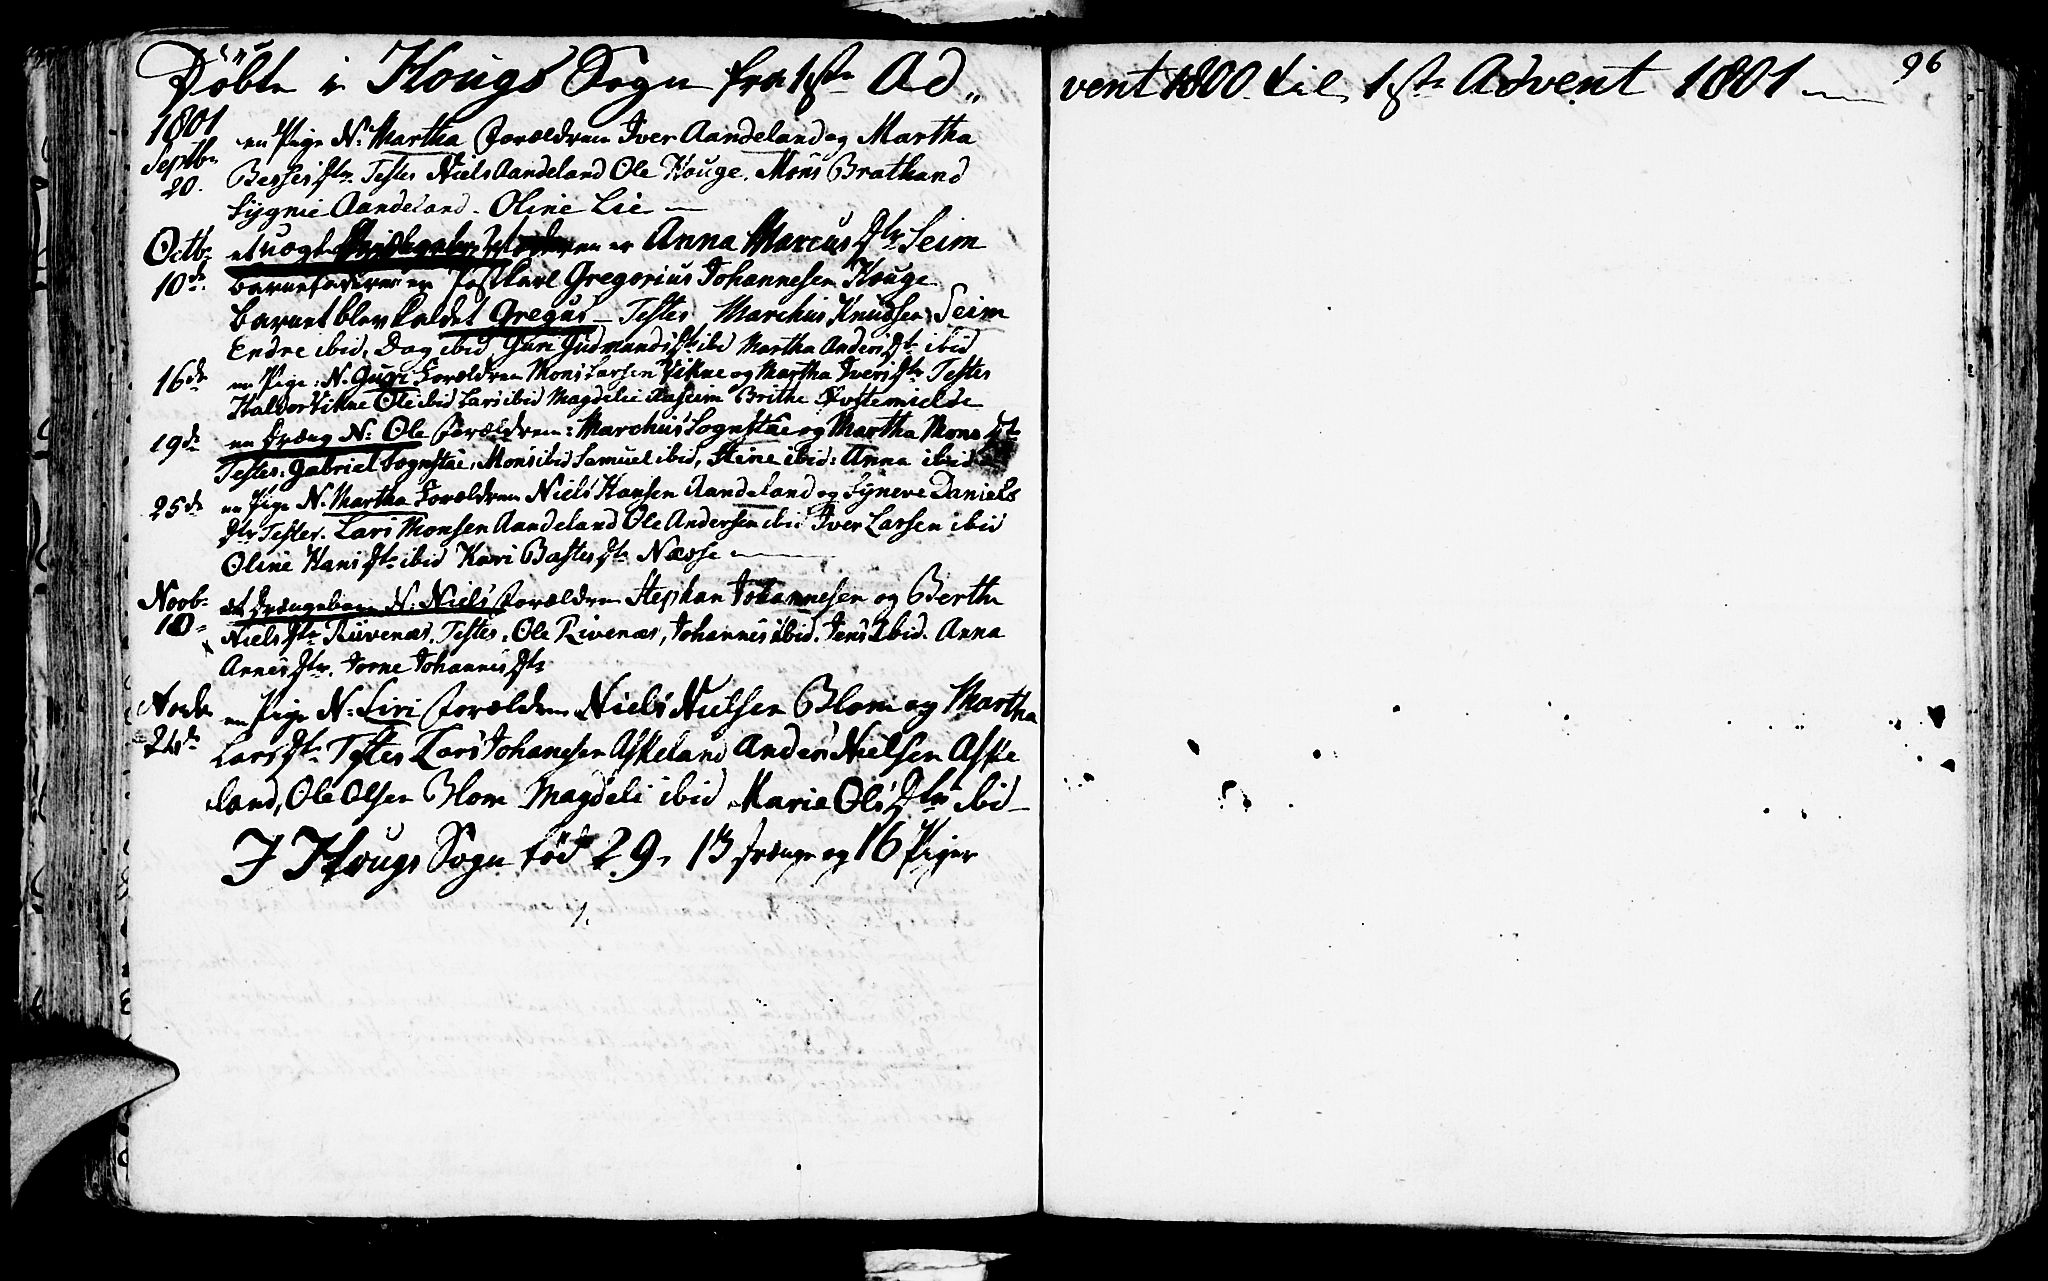 Döbte i Hougs Sogn fra 1ste Ad„
vent 1800 til 1ste Advent 1801
96
1801
Septbr 20. en Pige N: Martha Forældrene Iver Aandeland og Martha
Besses Dtr Testes Niels Aandeland Ole Houge. Mons Brathand
Sygnie Aandeland. Oline Lie
Octbr et uægte er Anna Marcus Dtr Seim
10de Barnefaderen er Gregorius Johannesen Houge
Barnet blev kaldet Gregus – Testes Marchus Knudsen Seim
Endre ibid. Dag ibid Guri Gudmands Dtr ibd Martha Anders Dtr ibid
16de en Pige: N. Guri Forældrene Mons Larsen Vikne og Martha Ivers Dtr Testes
Halvor Vikne Ole ibid Lars ibid Magdelie Aaseim Brithe
19de en Dræng N: Ole Forældrene: Marchus Sognstae og Martha Mons Dtr
Testes. Gabriel Sognstae, Mons ibid Samuel ibid, Stine ibid: Anna ibid
25de en Pige N. Martha Forældrene Niels Hansen Aandeland og Syneve Daniels
Dtr Testes. Lars Monsen Aandeland Ole Andersen ibid Iver Larsen ibid
Oline Hans Dtr ibid Kari Bastes Dtr Næsse
Novb: 10 et Drængebarn N: Niels Forældrene Stephan Johannesen og Berthe
Niels Dtr Rivenæs. Testes. Ole Rivenæs, Johannes ibid. Jens ibid. Anna
Annes Dtr. Johannes Dtr
Novbr en Pige N: Siri Forældrene Niels Nielsen Blom og Martha
Lars Dtr Testes Lars Johanesen Askeland Anders Nielsen Aske
land, Ole Olsen Blom Magdeli ibid Marie Ols Dtr ibid
I Hougs Sogn född 29, 13 Drænge og 16 Piger